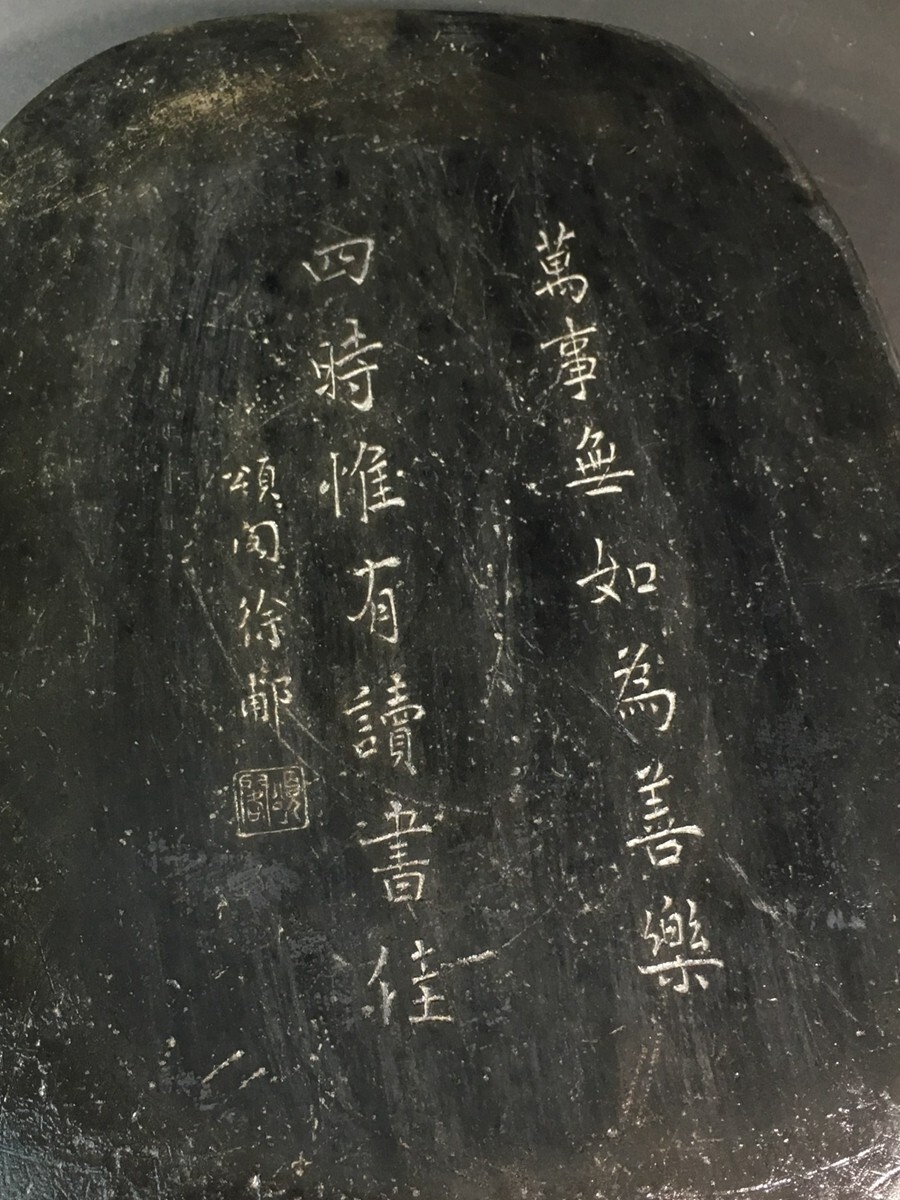 萬事無如為善樂
四時惟有讀書佳
頌閣徐郙
頌閣